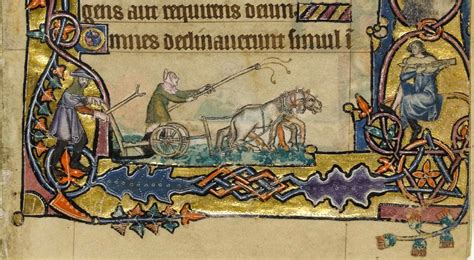 gens aut requirens deum
Omnes declinauerunt simul i